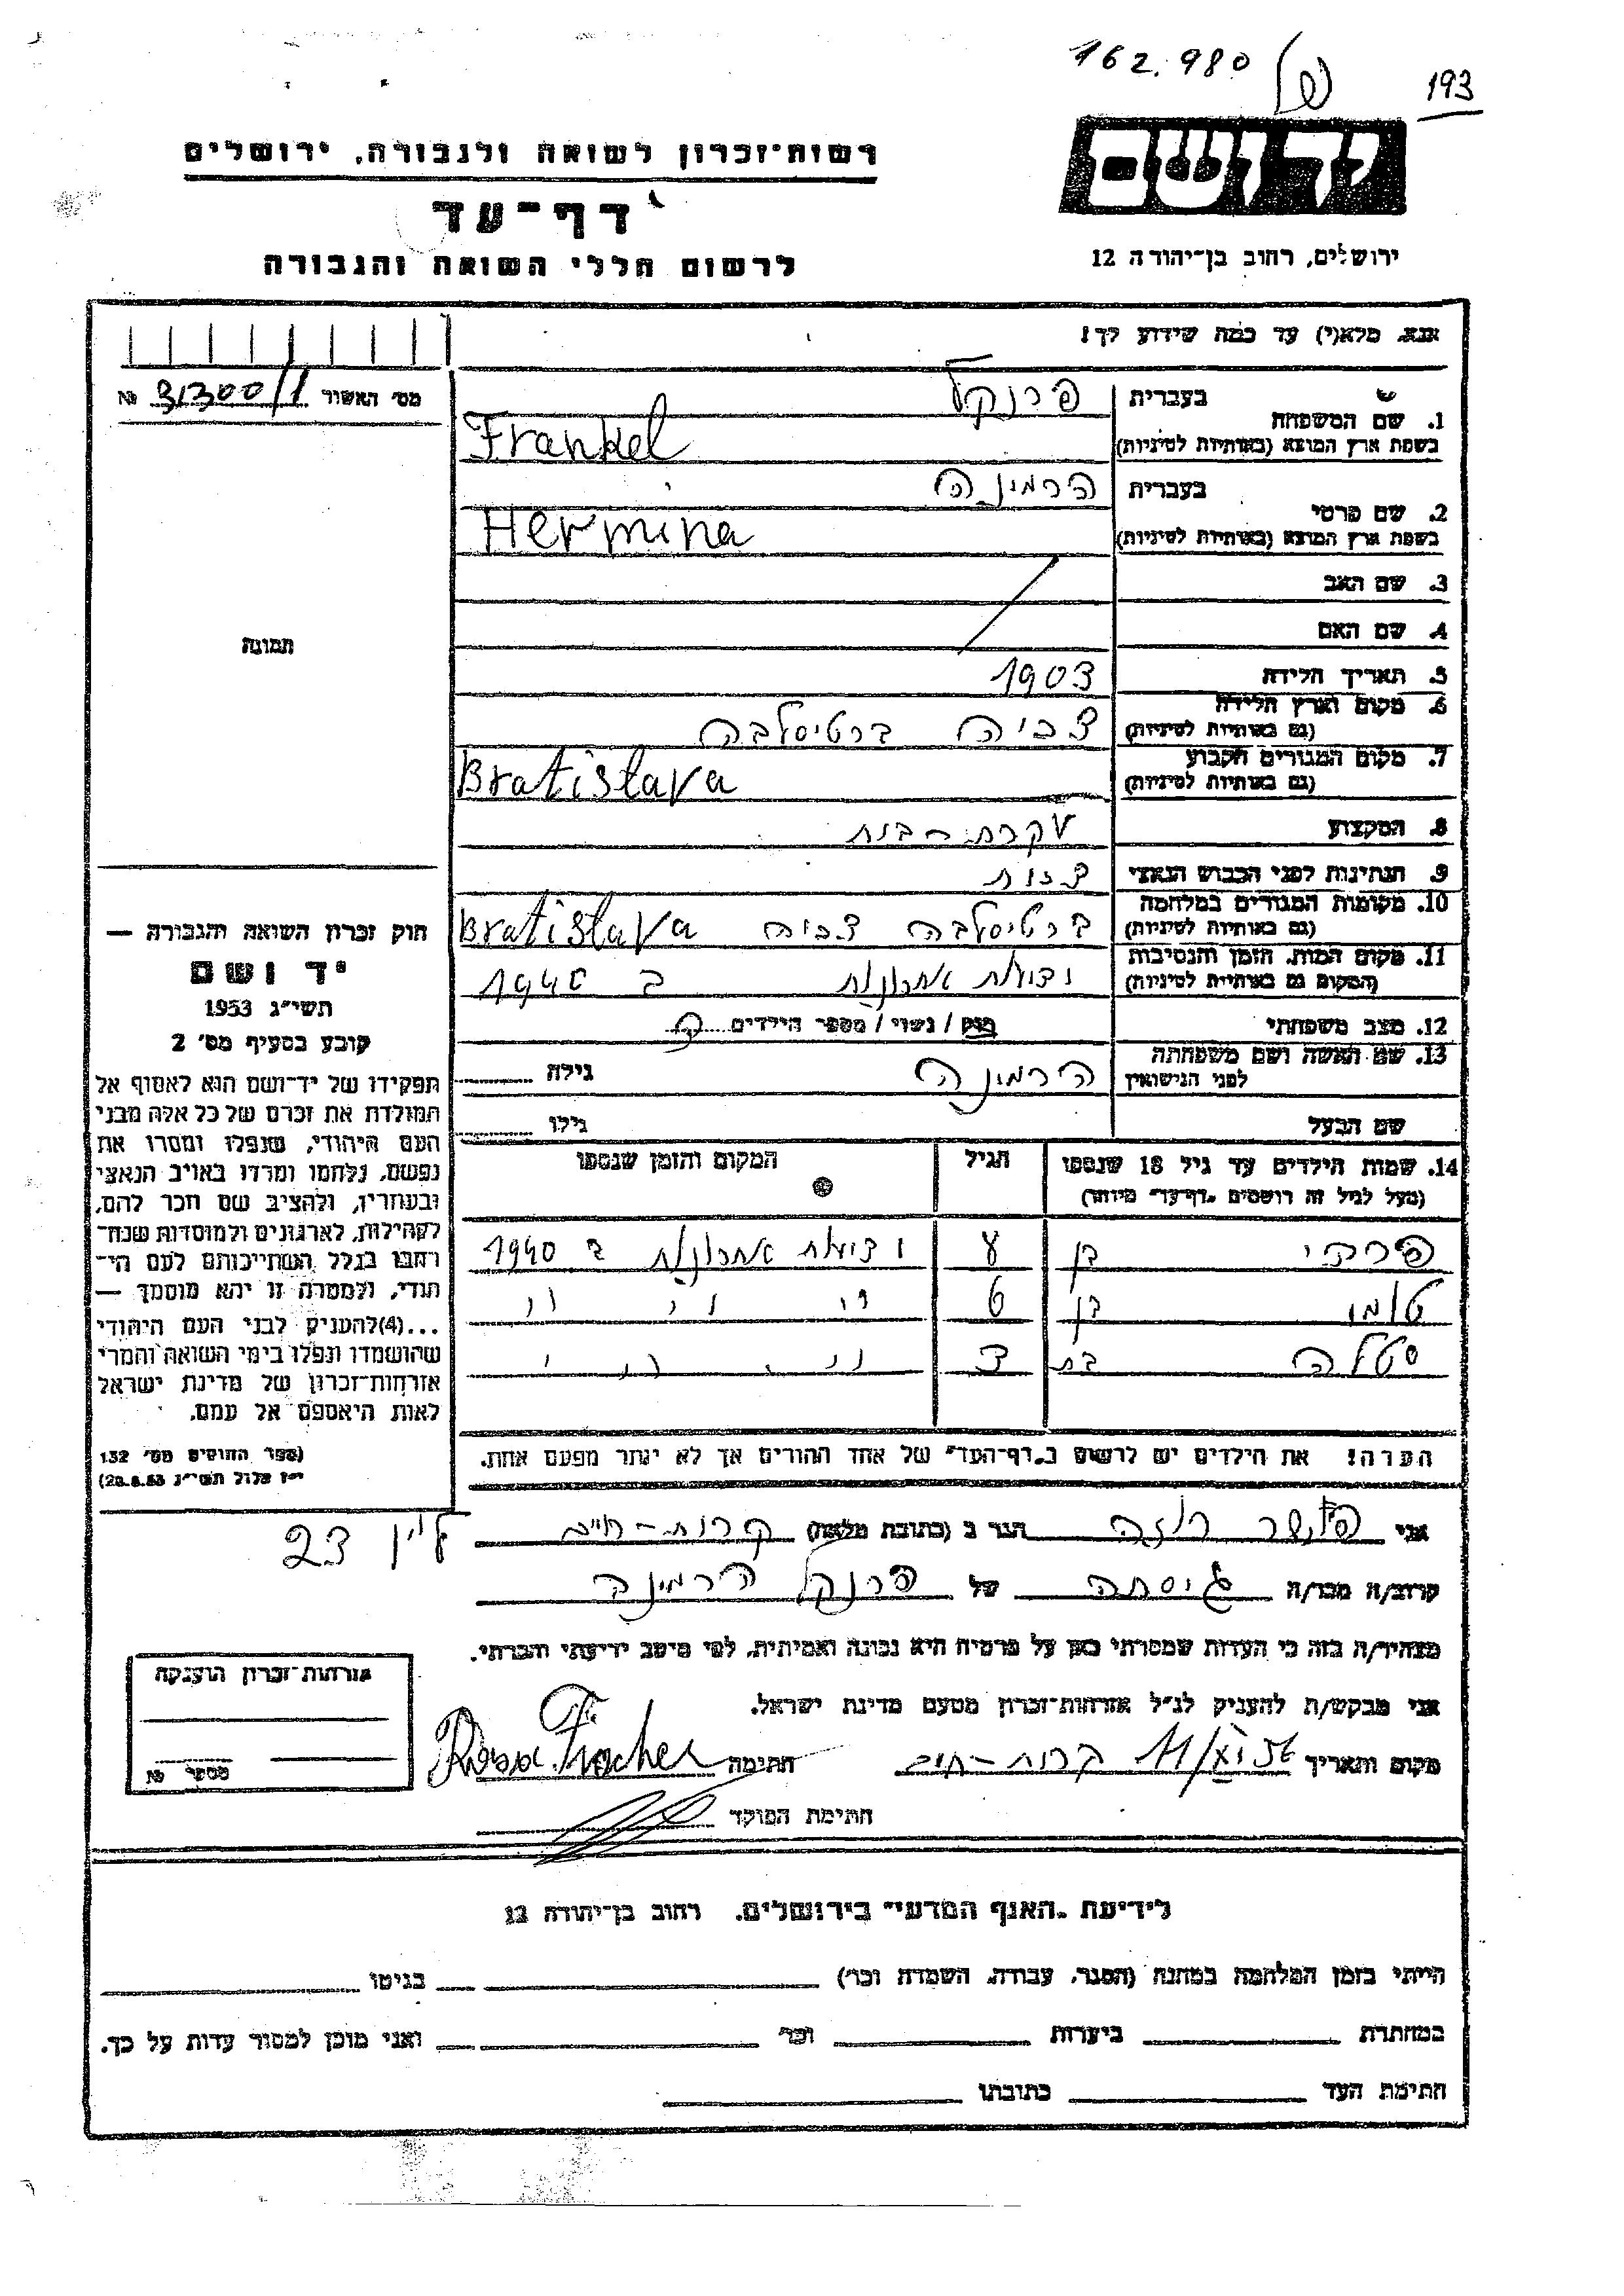 162.980
193
יד ושם
רשות-זכרון לשואה ולגבורה, ירושלים
דף-עד
לרשום חללי השואה והגבורה
ירושלים, רחוב בן-יהודה 12
אנא, מלא(י) עד כמה שידוע לך!
מס׳ האשור 31300/1 №
1. שם המשפחה בעברית פרנקל
בשפת ארץ המוצא (באותיות לטיניות) Frankel
2. שם פרטי בעברית הרמינה
בשפת ארץ המוצא (באותיות לטיניות) Hermina
3. שם האב
4. שם האם
תמונה
5. תאריך הלידה 1903
6. מקום וארץ הלידה
(גם באותיות לטיניות) צ׳כיה ברטיסלבה
7. מקום המגורים הקבוע
(גם באותיות לטיניות) Bratislava
8. המקצוע עקרת-בית
9. הנתינות לפני הכבוש הנאצי
10. מקומות המגורים במלחמה
(גם באותיות לטיניות) ברטיסלבה צ׳כיה Bratislava
11. מקום המות, הזמן והנסיבות
(המקום גם באותיות לטיניות) ידיעות אחרונות ב
12. מצב משפחתי רווק / נשוי / מספר הילדים
13. שם האשה ושם משפחתה
לפני הנישואין הרמינה גילה
שם הבעל גילו
14. שמות הילדים עד גיל 18 שנספו הגיל המקום והזמן שנספו
(מעל לגיל זה רושמים „דף-עד״ מיוחד)
בן ידיעות אחרונות ב 1940
בן 6 ״ ״ ״ ״
סטלה בת 3 ״ ״ ״ ״
הערה! את הילדים יש לרשום ב„דף-העד״ של אחד ההורים אך לא יותר מפעם אחת.
חוק זכרון השואה והגבורה —
יד ושם
תשי״ג 1953
קובע בסעיף מס׳ 2
תפקידו של יד-ושם הוא לאסוף אל
המולדת את זכרם של כל אלה מבני
העם היהודי, שנפלו ומסרו את
נפשם, נלחמו ומרדו באויב הנאצי
ובעוזריו, ולהציב שם וזכר להם,
לקהילות, לארגונים ולמוסדות שנח־
רבו בגלל השתייכותם לעם היה־
ודי, ולמטרה זו יהא מוסמך —
...(4) להעניק לבני העם היהודי
שהושמדו ונפלו בימי השואה והמרי
אזרחות-זכרון של מדינת ישראל
לאות היאספם אל עמם.
(ספר החוקים מס׳ 132
י״ז אלול תשי״ג 28.8.53)
אני פישר רוזה הגר ב (כתובת מלאה) קרית-חיים
23
קרוב/ה מכר/ה גיסתה של פרנקל הרמינה
מצהיר/ה בזה כי העדות שמסרתי כאן על פרטיה היא נכונה ואמיתית, לפי מיטב ידיעתי והכרתי.
אני מבקש/ת להעניק לנ״ל אזרחות-זכרון מטעם מדינת ישראל.
מקום ותאריך קרית-חיים 11/XI 56 חתימה
חתימת הפוקד
אזרחות-זכרון הוענקה
מספר №
לידיעת „האגף המדעי״ בירושלים, רחוב בן-יהודה 12
הייתי בזמן המלחמה במחנה (הסגר, עבודה, השמדה וכו׳) בגיטו
במחתרת ביערות וכו׳ ואני מוכן למסור עדות על כך.
חתימת העד כתובתו